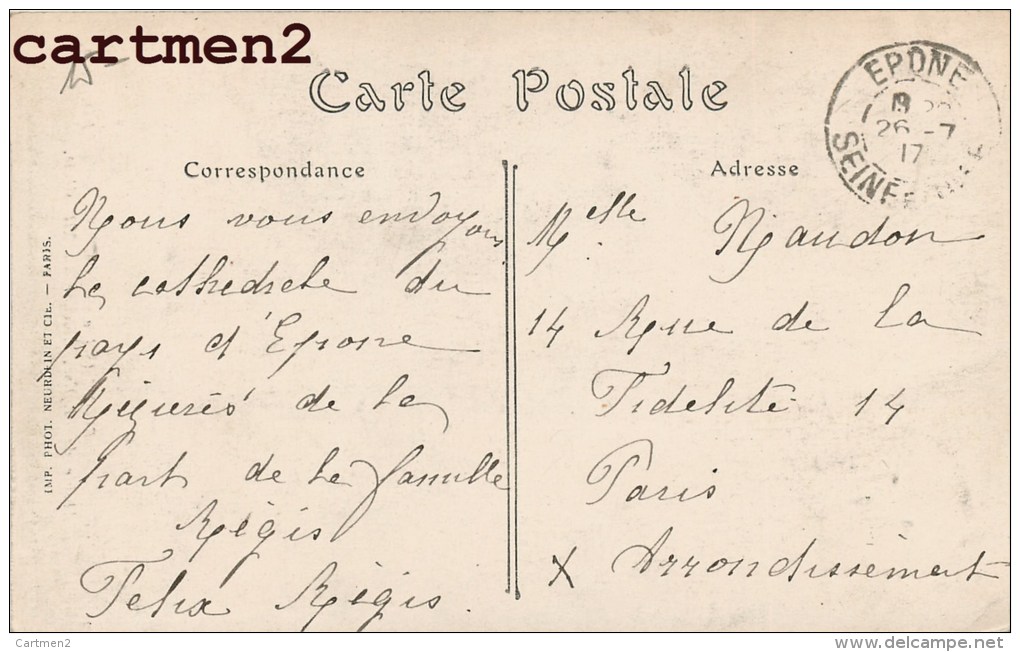 cartmen2
Carte Postale
Correspondance
Nous vous envoyons
la cathedrale du
pays d'Epone
Mézieres de la
part de la famille
Régis
Felix Régis.
Adresse
Melle Naudon
14 Rue de la
Fidelité 14
Paris
X Arrondissement
EPONE
26 -7
17
SEINE
IMP. PHOT. NEURDEIN ET CIE. — PARIS.
Cartmen2
www.delcampe.net